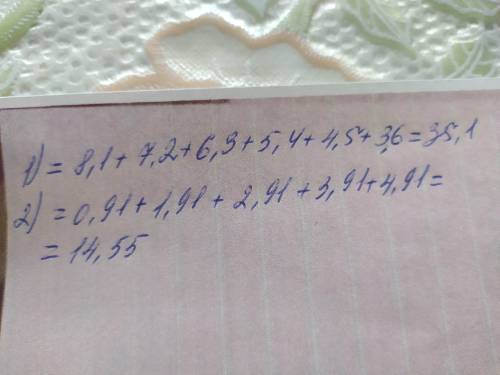 1) = 8,1 + 7,2 + 6,3 + 5,4 + 4,5 + 3,6 = 35,1
2) = 0,91 + 1,91 + 2,91 + 3,91 + 4,91 =
= 14,55